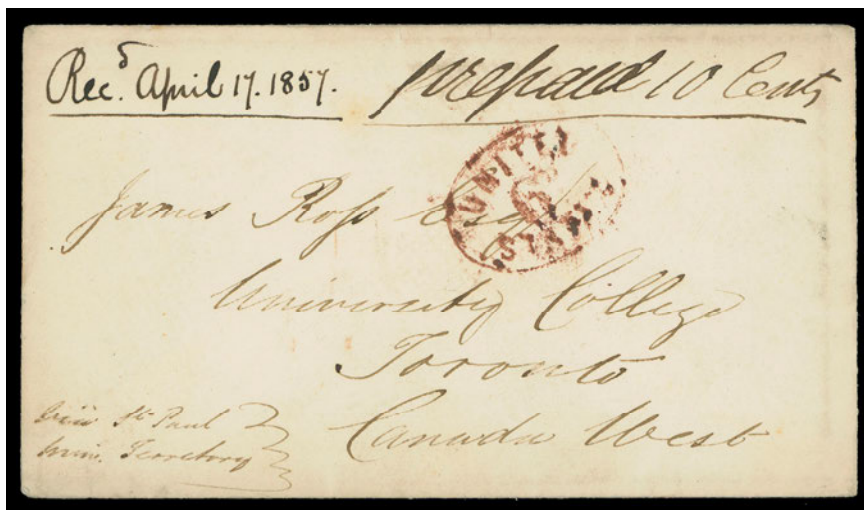 Rec.d April 17. 1857. prepaid 10 Cents
UNITED
6
STATES
James Ross Esqr
University College
Toronto
Canada West
via St Paul
Minn. Territory